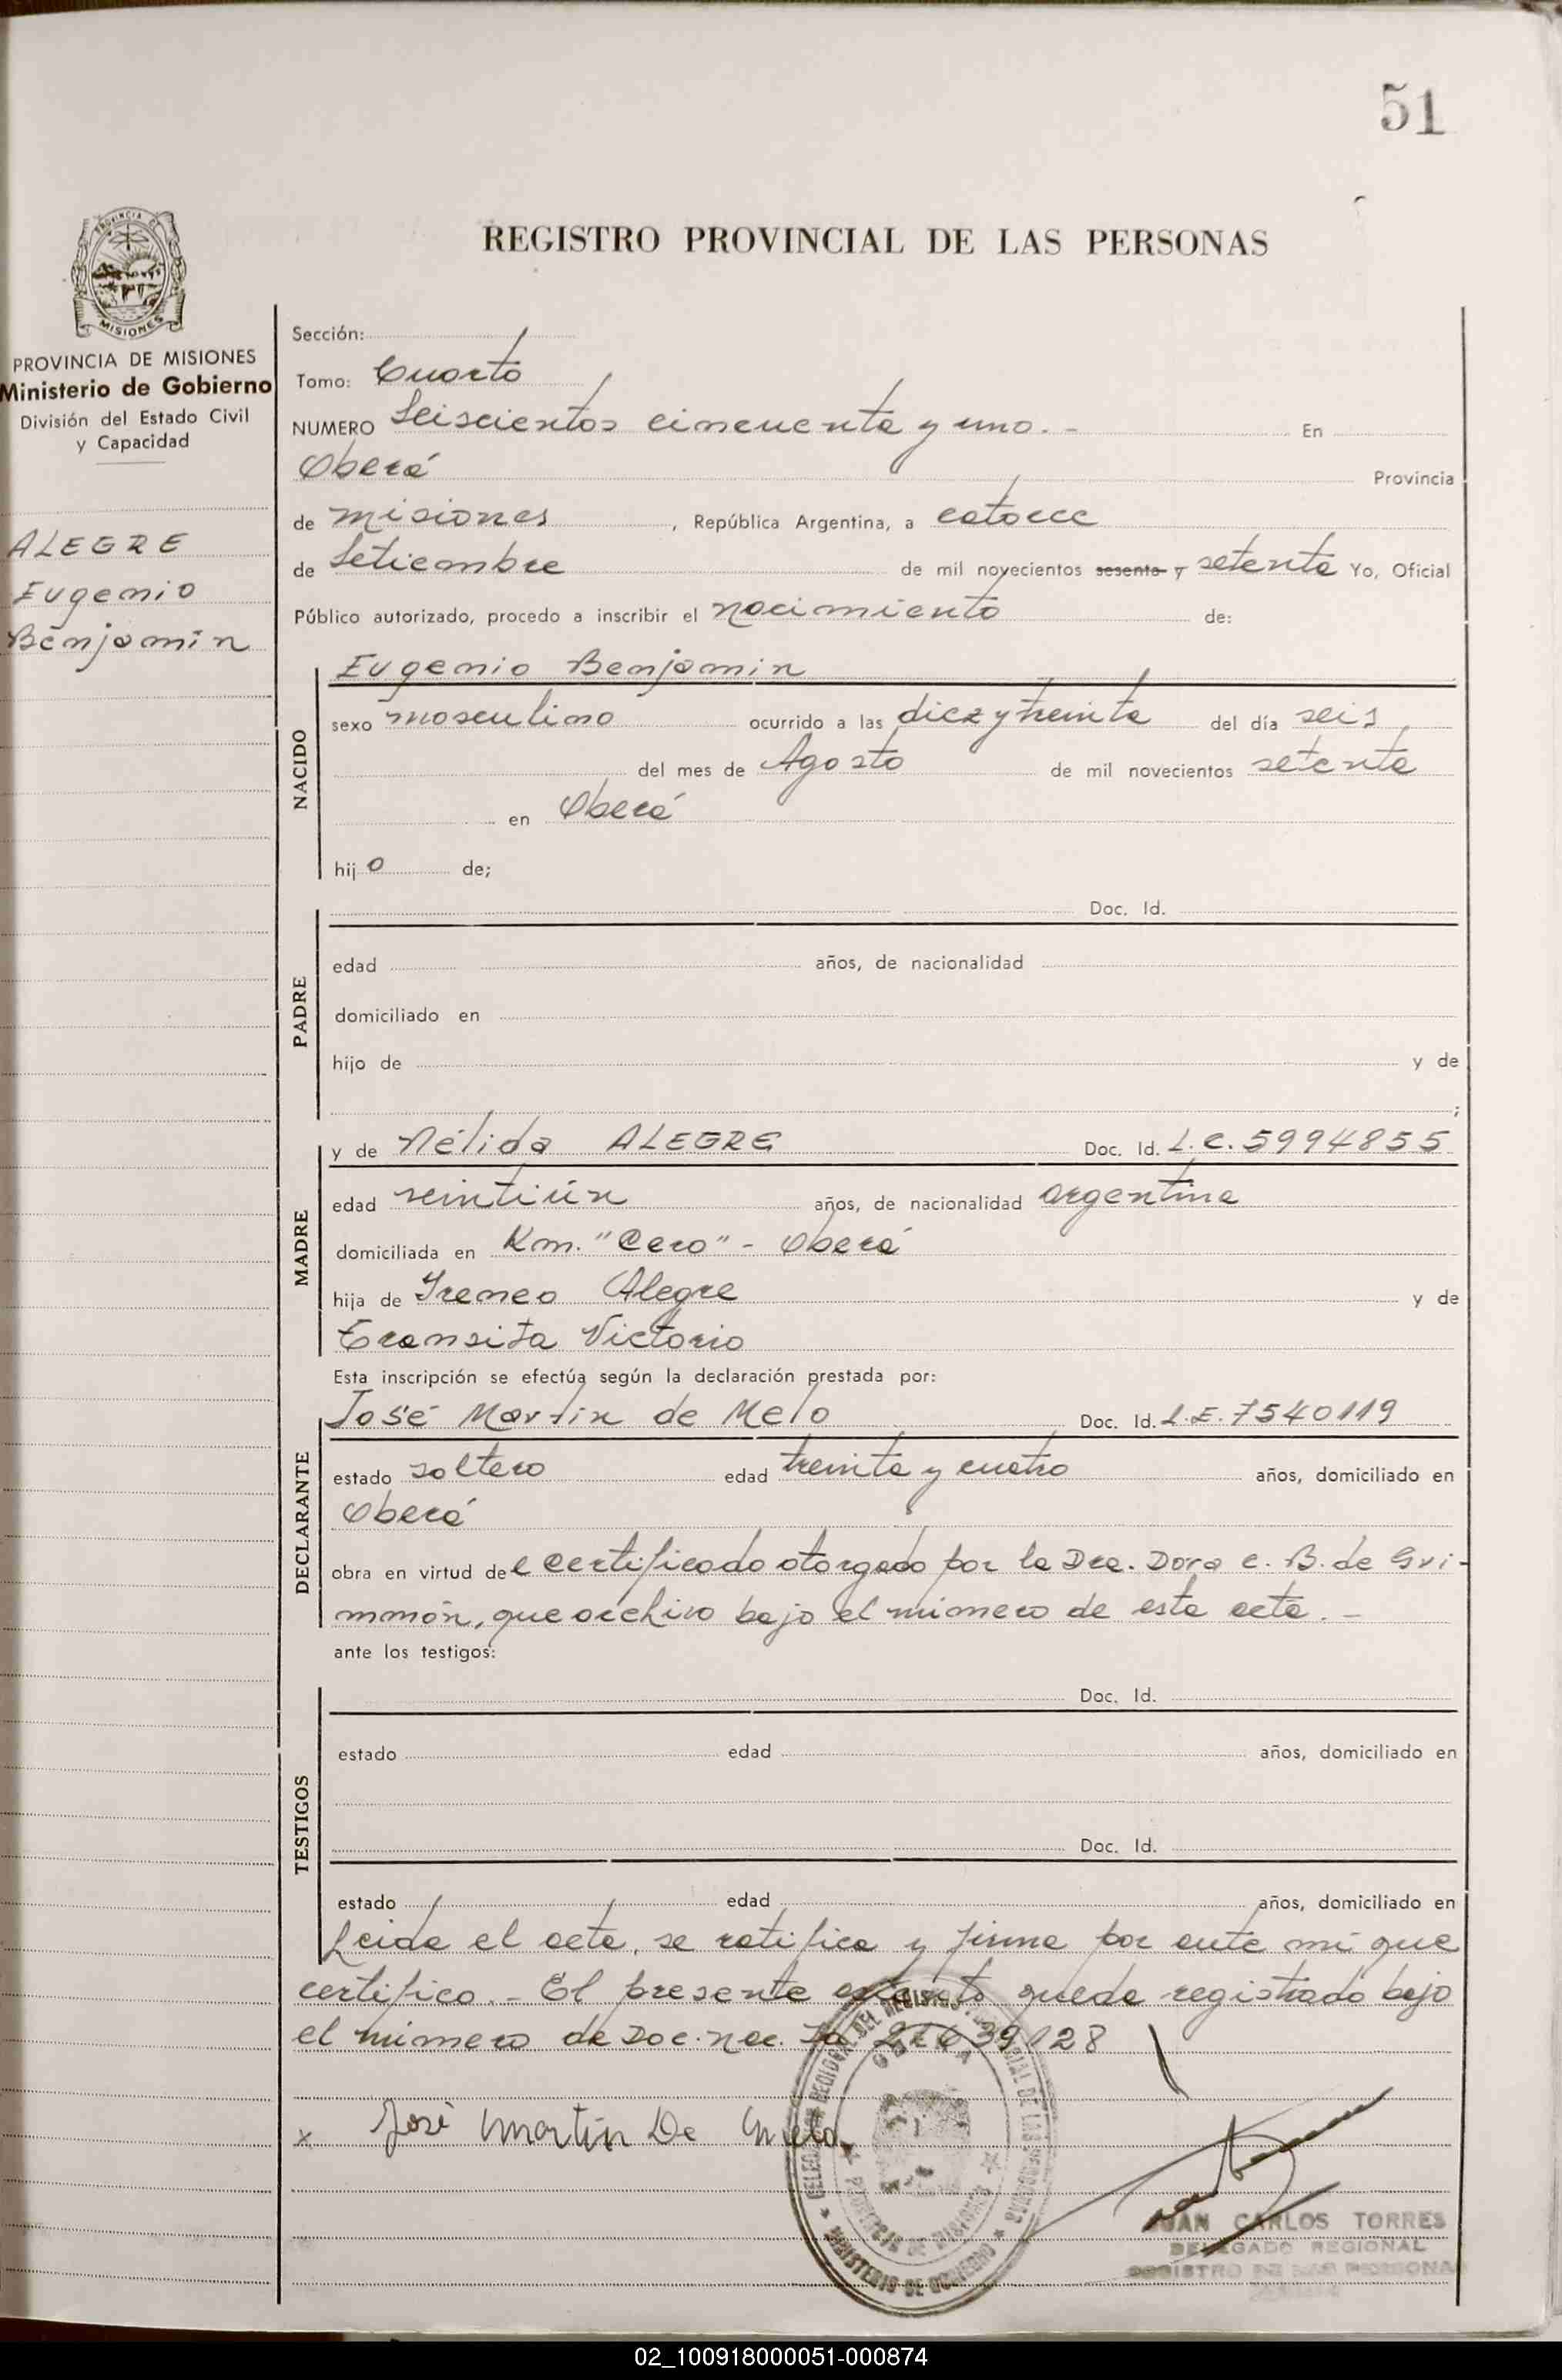 51
PROVINCIA DE
MISIONES
PROVINCIA DE MISIONES
Ministerio de Gobierno
División del Estado Civil
y Capacidad
ALEGRE
Eugenio
Benjamín
REGISTRO PROVINCIAL DE LAS PERSONAS
Sección:
Tomo: Cuarto
NUMERO Seiscientos cincuenta y uno.- En
Oberá Provincia
de Misiones, República Argentina, a catorce
de Setiembre de mil novecientos sesenta y setenta Yo, Oficial
Público autorizado, procedo a inscribir el nacimiento de:
NACIDO
Eugenio Benjamin
sexo masculino ocurrido a las diez y treinta del día seis
del mes de Agosto de mil novecientos setenta
en Oberá
hijo de;
PADRE
Doc. Id.
edad años, de nacionalidad
domiciliado en
hijo de y de
;
MADRE
y de Nélida ALEGRE Doc. Id. L.C. 5994855
edad veintiún años, de nacionalidad argentina
domiciliada en Km. "Cero" - Oberá
hija de Ireneo Alegre y de
Transita Victorio
Esta inscripción se efectúa según la declaración prestada por:
DECLARANTE
José Martin de Melo Doc. Id. L.E. 7540119
estado soltero edad treinta y cuatro años, domiciliado en
Oberá
obra en virtud del certificado otorgado por la Dra. Dora C. B. de Gui-
mmón, que archivo bajo el número de esta acta.-
ante los testigos:
TESTIGOS
Doc. Id.
estado edad años, domiciliado en
Doc. Id.
estado edad años, domiciliado en
Leida el acta, se ratifica y firma por ante mí que
certifico.- El presente queda registrado bajo
el número de Doc. nac. Id.
José Martin De Melo
DELEGACION REGIONAL DEL REGISTRO PROVINCIAL DE LAS PERSONAS
OBERA
PROVINCIA DE MISIONES
MINISTERIO DE GOBIERNO
JUAN CARLOS TORRES
DELEGADO REGIONAL
REGISTRO DE LAS PERSONAS
02_100918000051-000874